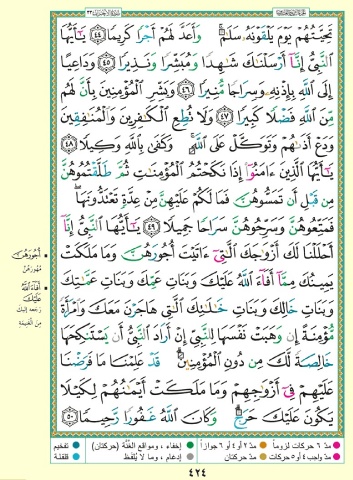 تَحِيَّتُهُمْ يَوْمَ يَلْقَوْنَهُ سَلَٰمٌ وَأَعَدَّ لَهُمْ أَجْرًا كَرِيمًا ٤٤ يَٰٓأَيُّهَا
ٱلنَّبِىُّ إِنَّآ أَرْسَلْنَٰكَ شَٰهِدًا وَمُبَشِّرًا وَنَذِيرًا ٤٥ وَدَاعِيًا
إِلَى ٱللَّهِ بِإِذْنِهِۦ وَسِرَاجًا مُّنِيرًا ٤٦ وَبَشِّرِ ٱلْمُؤْمِنِينَ بِأَنَّ لَهُم
مِّنَ ٱللَّهِ فَضْلًا كَبِيرًا ٤٧ وَلَا تُطِعِ ٱلْكَٰفِرِينَ وَٱلْمُنَٰفِقِينَ
وَدَعْ أَذَىٰهُمْ وَتَوَكَّلْ عَلَى ٱللَّهِ وَكَفَىٰ بِٱللَّهِ وَكِيلًا ٤٨
يَٰٓأَيُّهَا ٱلَّذِينَ ءَامَنُوٓا۟ إِذَا نَكَحْتُمُ ٱلْمُؤْمِنَٰتِ ثُمَّ طَلَّقْتُمُوهُنَّ
مِن قَبْلِ أَن تَمَسُّوهُنَّ فَمَا لَكُمْ عَلَيْهِنَّ مِنْ عِدَّةٍ تَعْتَدُّونَهَا
فَمَتِّعُوهُنَّ وَسَرِّحُوهُنَّ سَرَاحًا جَمِيلًا ٤٩ يَٰٓأَيُّهَا ٱلنَّبِىُّ إِنَّآ
أَحْلَلْنَا لَكَ أَزْوَٰجَكَ ٱلَّٰتِىٓ ءَاتَيْتَ أُجُورَهُنَّ وَمَا مَلَكَتْ
يَمِينُكَ مِمَّآ أَفَآءَ ٱللَّهُ عَلَيْكَ وَبَنَاتِ عَمِّكَ وَبَنَاتِ عَمَّٰتِكَ
وَبَنَاتِ خَالِكَ وَبَنَاتِ خَٰلَٰتِكَ ٱلَّٰتِى هَاجَرْنَ مَعَكَ وَٱمْرَأَةً
مُّؤْمِنَةً إِن وَهَبَتْ نَفْسَهَا لِلنَّبِىِّ إِنْ أَرَادَ ٱلنَّبِىُّ أَن يَسْتَنكِحَهَا
خَالِصَةً لَّكَ مِن دُونِ ٱلْمُؤْمِنِينَ قَدْ عَلِمْنَا مَا فَرَضْنَا
عَلَيْهِمْ فِىٓ أَزْوَٰجِهِمْ وَمَا مَلَكَتْ أَيْمَٰنُهُمْ لِكَيْلَا
يَكُونَ عَلَيْكَ حَرَجٌ وَكَانَ ٱللَّهُ غَفُورًا رَّحِيمًا ٥٠
أُجُورَهُنَّ
مُهُورَهُنَّ
أَفَآءَ ٱللَّهُ
عَلَيْكَ
رجعه إليك
من الغنيمة
مدّ ٦ حركات لزوماً مدّ ٢ أو ٤ أو ٦ جوازاً إخفاء، ومواقع الغُنَّة (حركتان) تفخيم
مدّ واجب ٤ أو ٥ حركات مدّ حركتان إدغام، وما لا يُلفظ قلقلة
٤٢٤